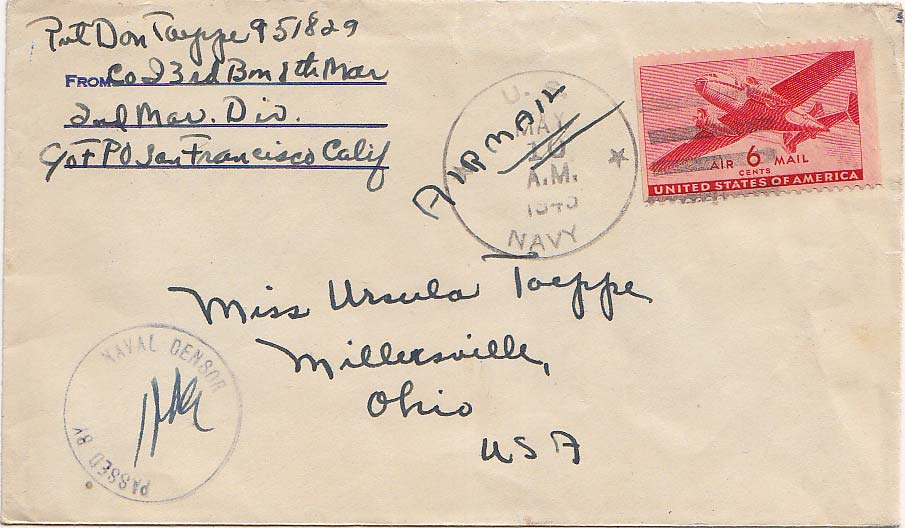 Pvt Don Toeppe 951829
FROM Co I 3rd Bn 8th Mar
2nd Mar. Div.
c/o F PO San Francisco Calif
AIR MAIL
U. S.
MAY
10
A.M.
1943
NAVY
AIR 6 MAIL
CENTS
UNITED STATES OF AMERICA
Miss Ursula Toeppe
Millersville,
Ohio
USA
PASSED BY
NAVAL CENSOR